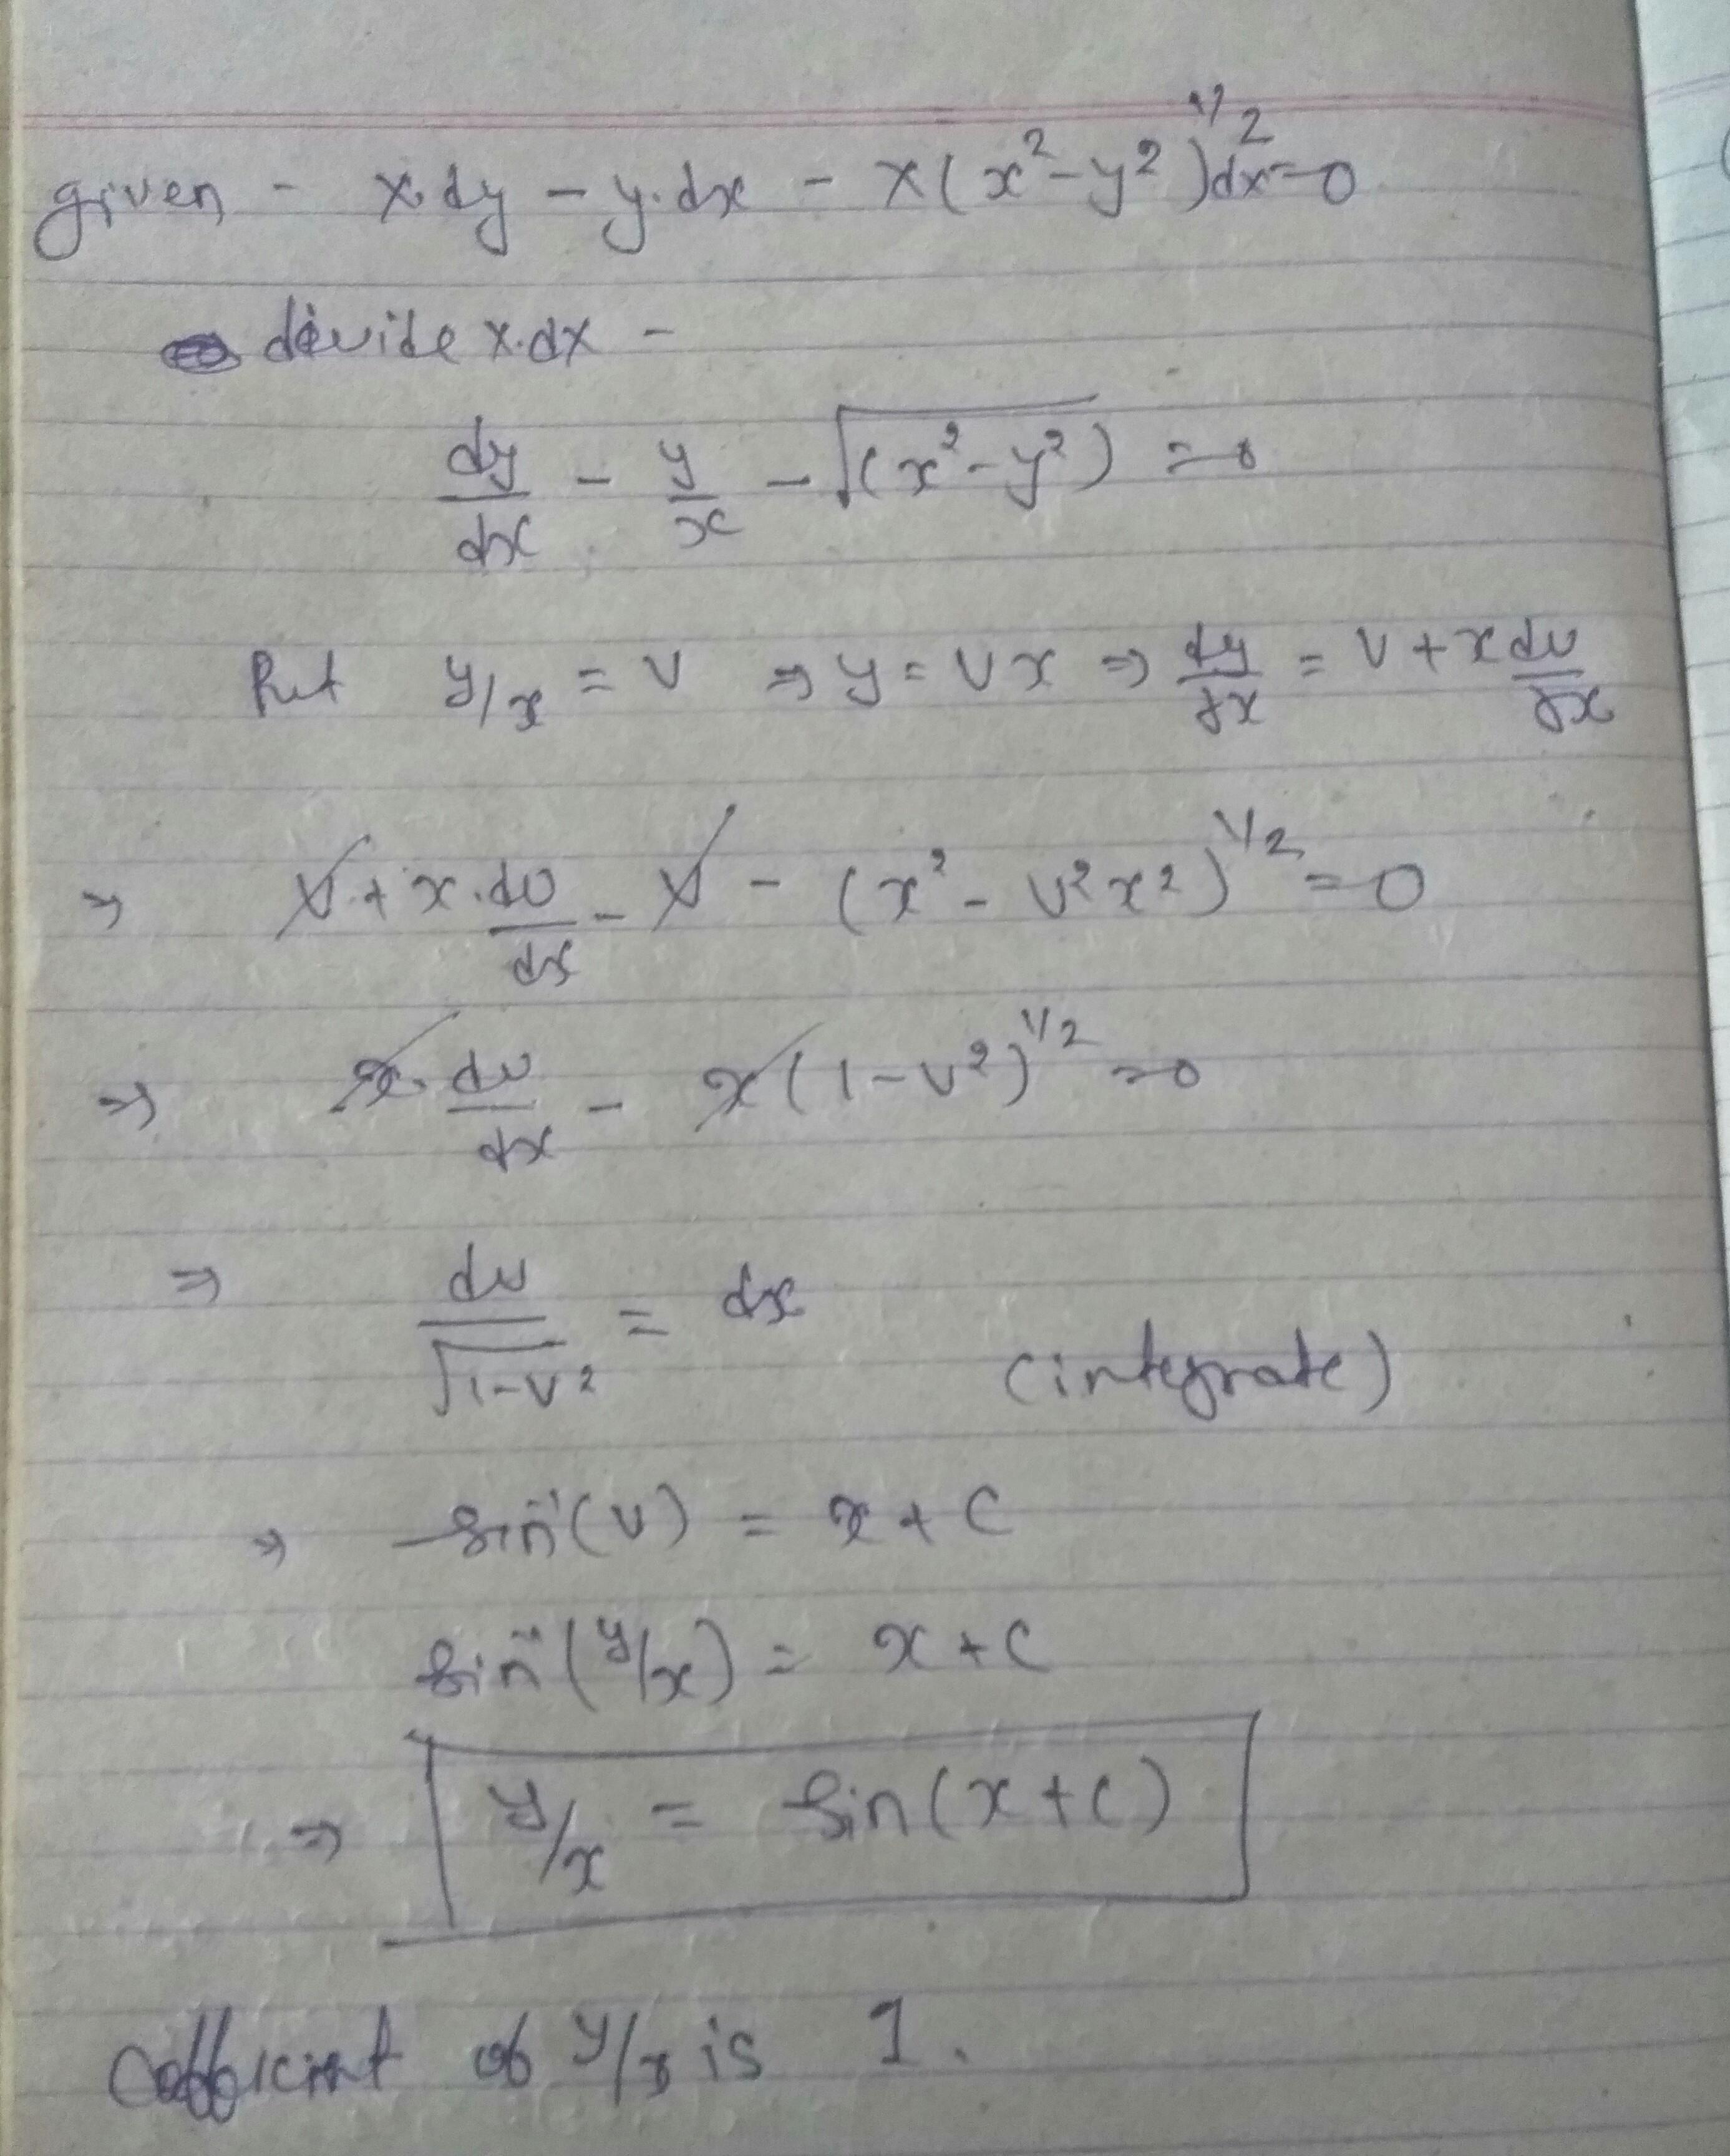 given - x.dy - y.dx - x(x² - y²)^1/2 dx = 0
devide x.dx -
dy/dx - y/x - √(x² - y²) = 0
Put y/x = v ⇒ y = vx ⇒ dy/dx = v + x dv/dx
⇒ v + x.dv/dx - v - (x² - v²x²)^1/2 = 0
⇒ x.dv/dx - x(1 - v²)^1/2 = 0
⇒ dv/√1-v² = dx
(integrate)
⇒ sin⁻¹(v) = x + c
sin⁻¹(y/x) = x + c
⇒ y/x = sin(x + c)
Cofficient of y/x is 1.